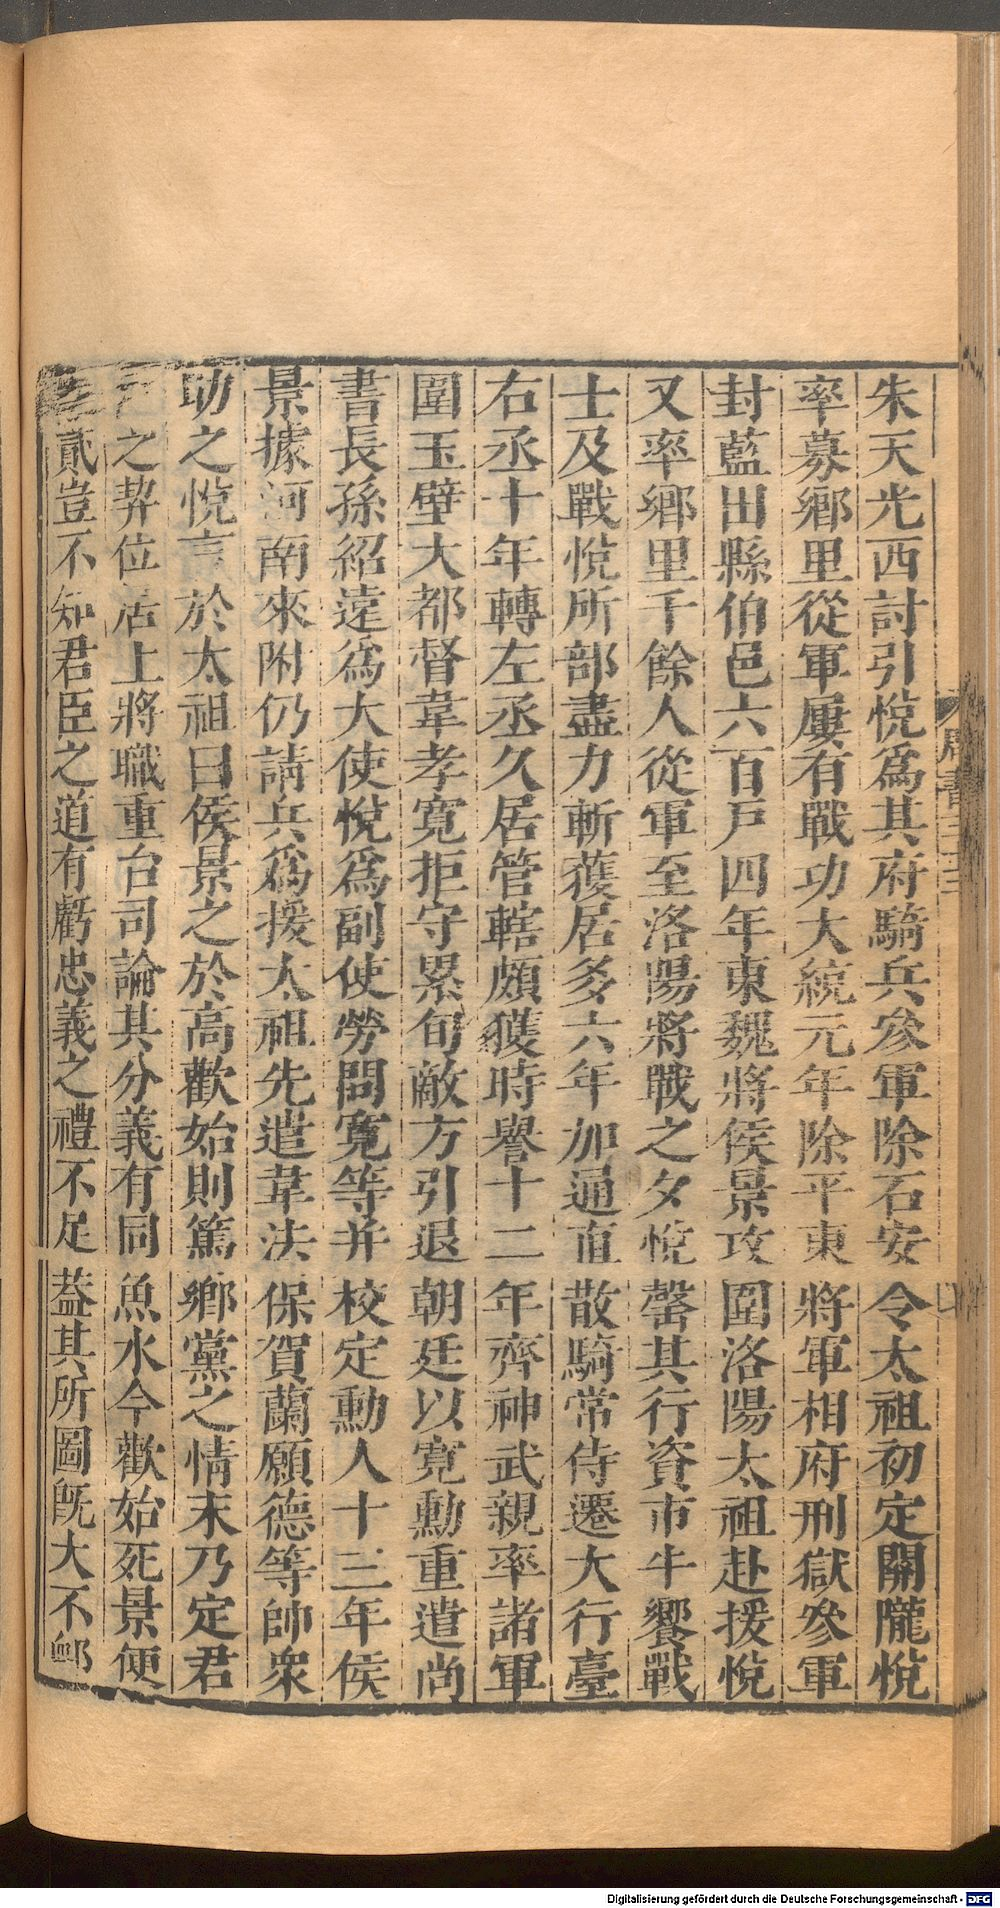 朱天光西討引悅爲其府騎兵叅軍除石安令太祖初定關隴悅
率募鄉里從軍屢有戰功大統元年除平東將軍相府刑獄叅軍
封藍田縣伯邑六百戶四年東魏將侯景攻圍洛陽太祖赴援悅
又率鄉里千餘人從軍至洛陽將戰之夕悅罄其行資市牛饗戰
士及戰悅所部盡力斬獲居多六年加通直散騎常侍遷大行臺
右丞十年轉左丞久居管轄頗獲時譽十二年齊神武親率諸軍
圍玉壁大都督韋孝寬拒守累旬敵方引退朝廷以寬勳重遣尚
書長孫紹遠爲大使悅爲副使勞問寬等并校定勳人十三年侯
景據河南來附仍請兵爲援太祖先遣韋法保賀蘭願德等帥衆
助之悅言於太祖曰侯景之於高歡始則篤鄉黨之情末乃定君
之契位居上將職重台司論其分義有同魚水今歡始死景便
貳豈不知君臣之道有虧忠義之禮不足蓋其所圖旣大不䘏
周書三十三
Digitalisierung gefördert durch die Deutsche Forschungsgemeinschaft - DFG